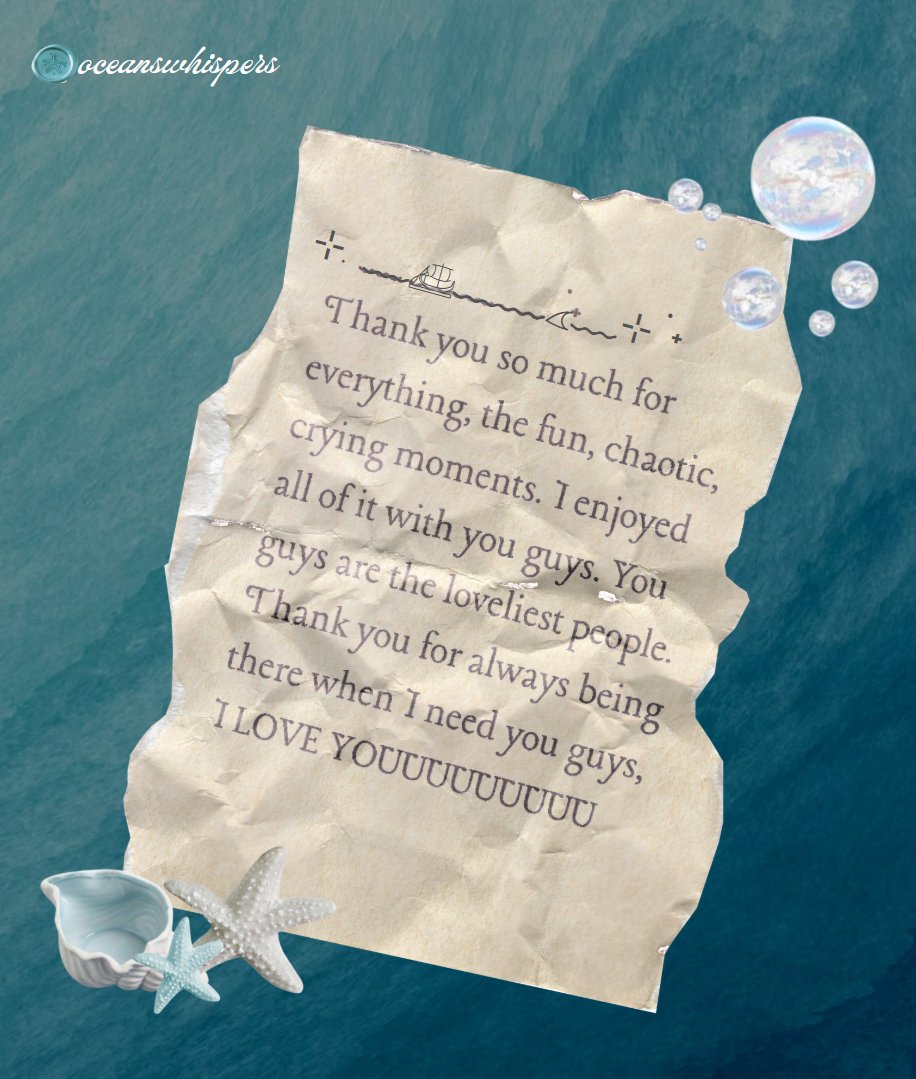 oceanswhispers
Thank you so much for
everything, the fun, chaotic,
crying moments. I enjoyed
all of it with you guys. You
guys are the loveliest people.
Thank you for always being
there when I need you guys,
I LOVE YOUUUUUUUUUU